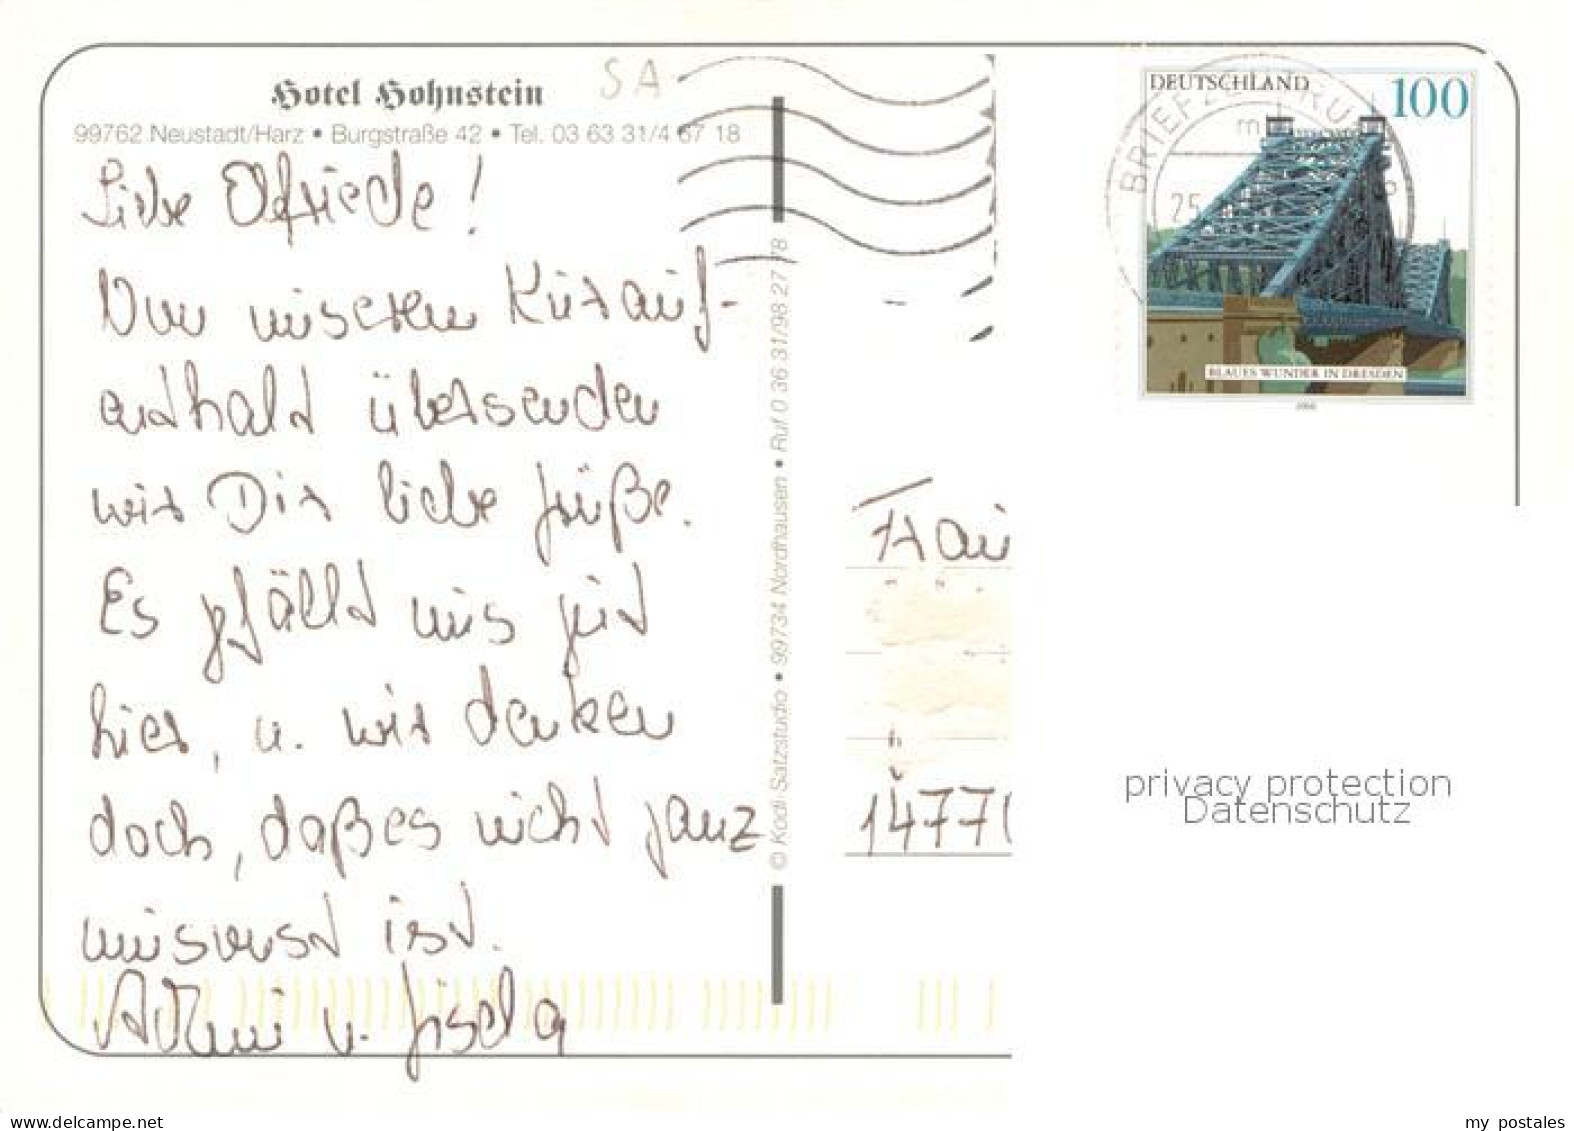 Hotel Hohnstein
SA
99762 Neustadt/Harz • Burgstraße 42 • Tel. 03 63 31/4 67 18
Liebe Elfriede!
Von unserem Kurauf-
enthalt übersenden
wir Dir liebe Grüße.
Es gefällt uns gut
hier, u. wir denken
doch, daß es nicht ganz
umsonst ist.
u. Gisela
© Kodli Satzstudio • 99734 Nordhausen • Ruf 0 36 31/98 27 78
DEUTSCHLAND
100
BRIEFZ
25
BLAUES WUNDER IN DRESDEN
2000
Frau
1477
privacy protection
Datenschutz
delcampe.net
my postales